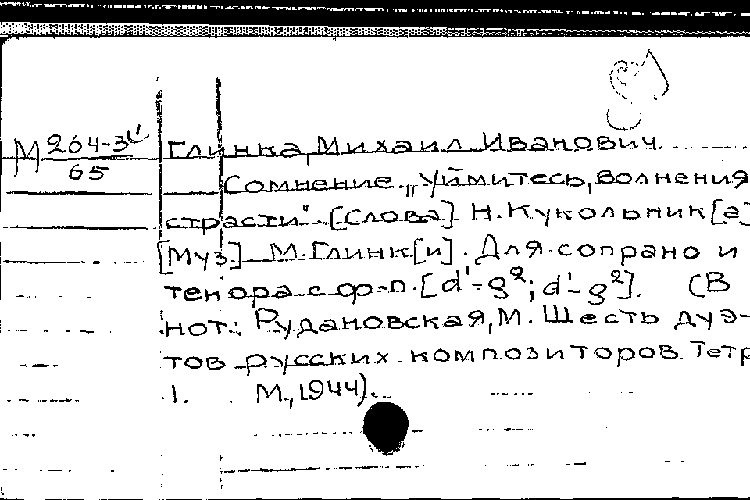 М 264-3
65
Глинка, Михаил Иванович.
Сомнение. „Уймитесь, волнения
страсти". [Слова] Н. Кукольник[а]
[Муз.] М. Глинк[и]. Для сопрано и
тенора с ф-п. [d¹-g²; d¹-g²]. (В
нот.: Рудановская, М. Шесть дуэ-
тов русских композиторов. Тетр
1. М., 1944).